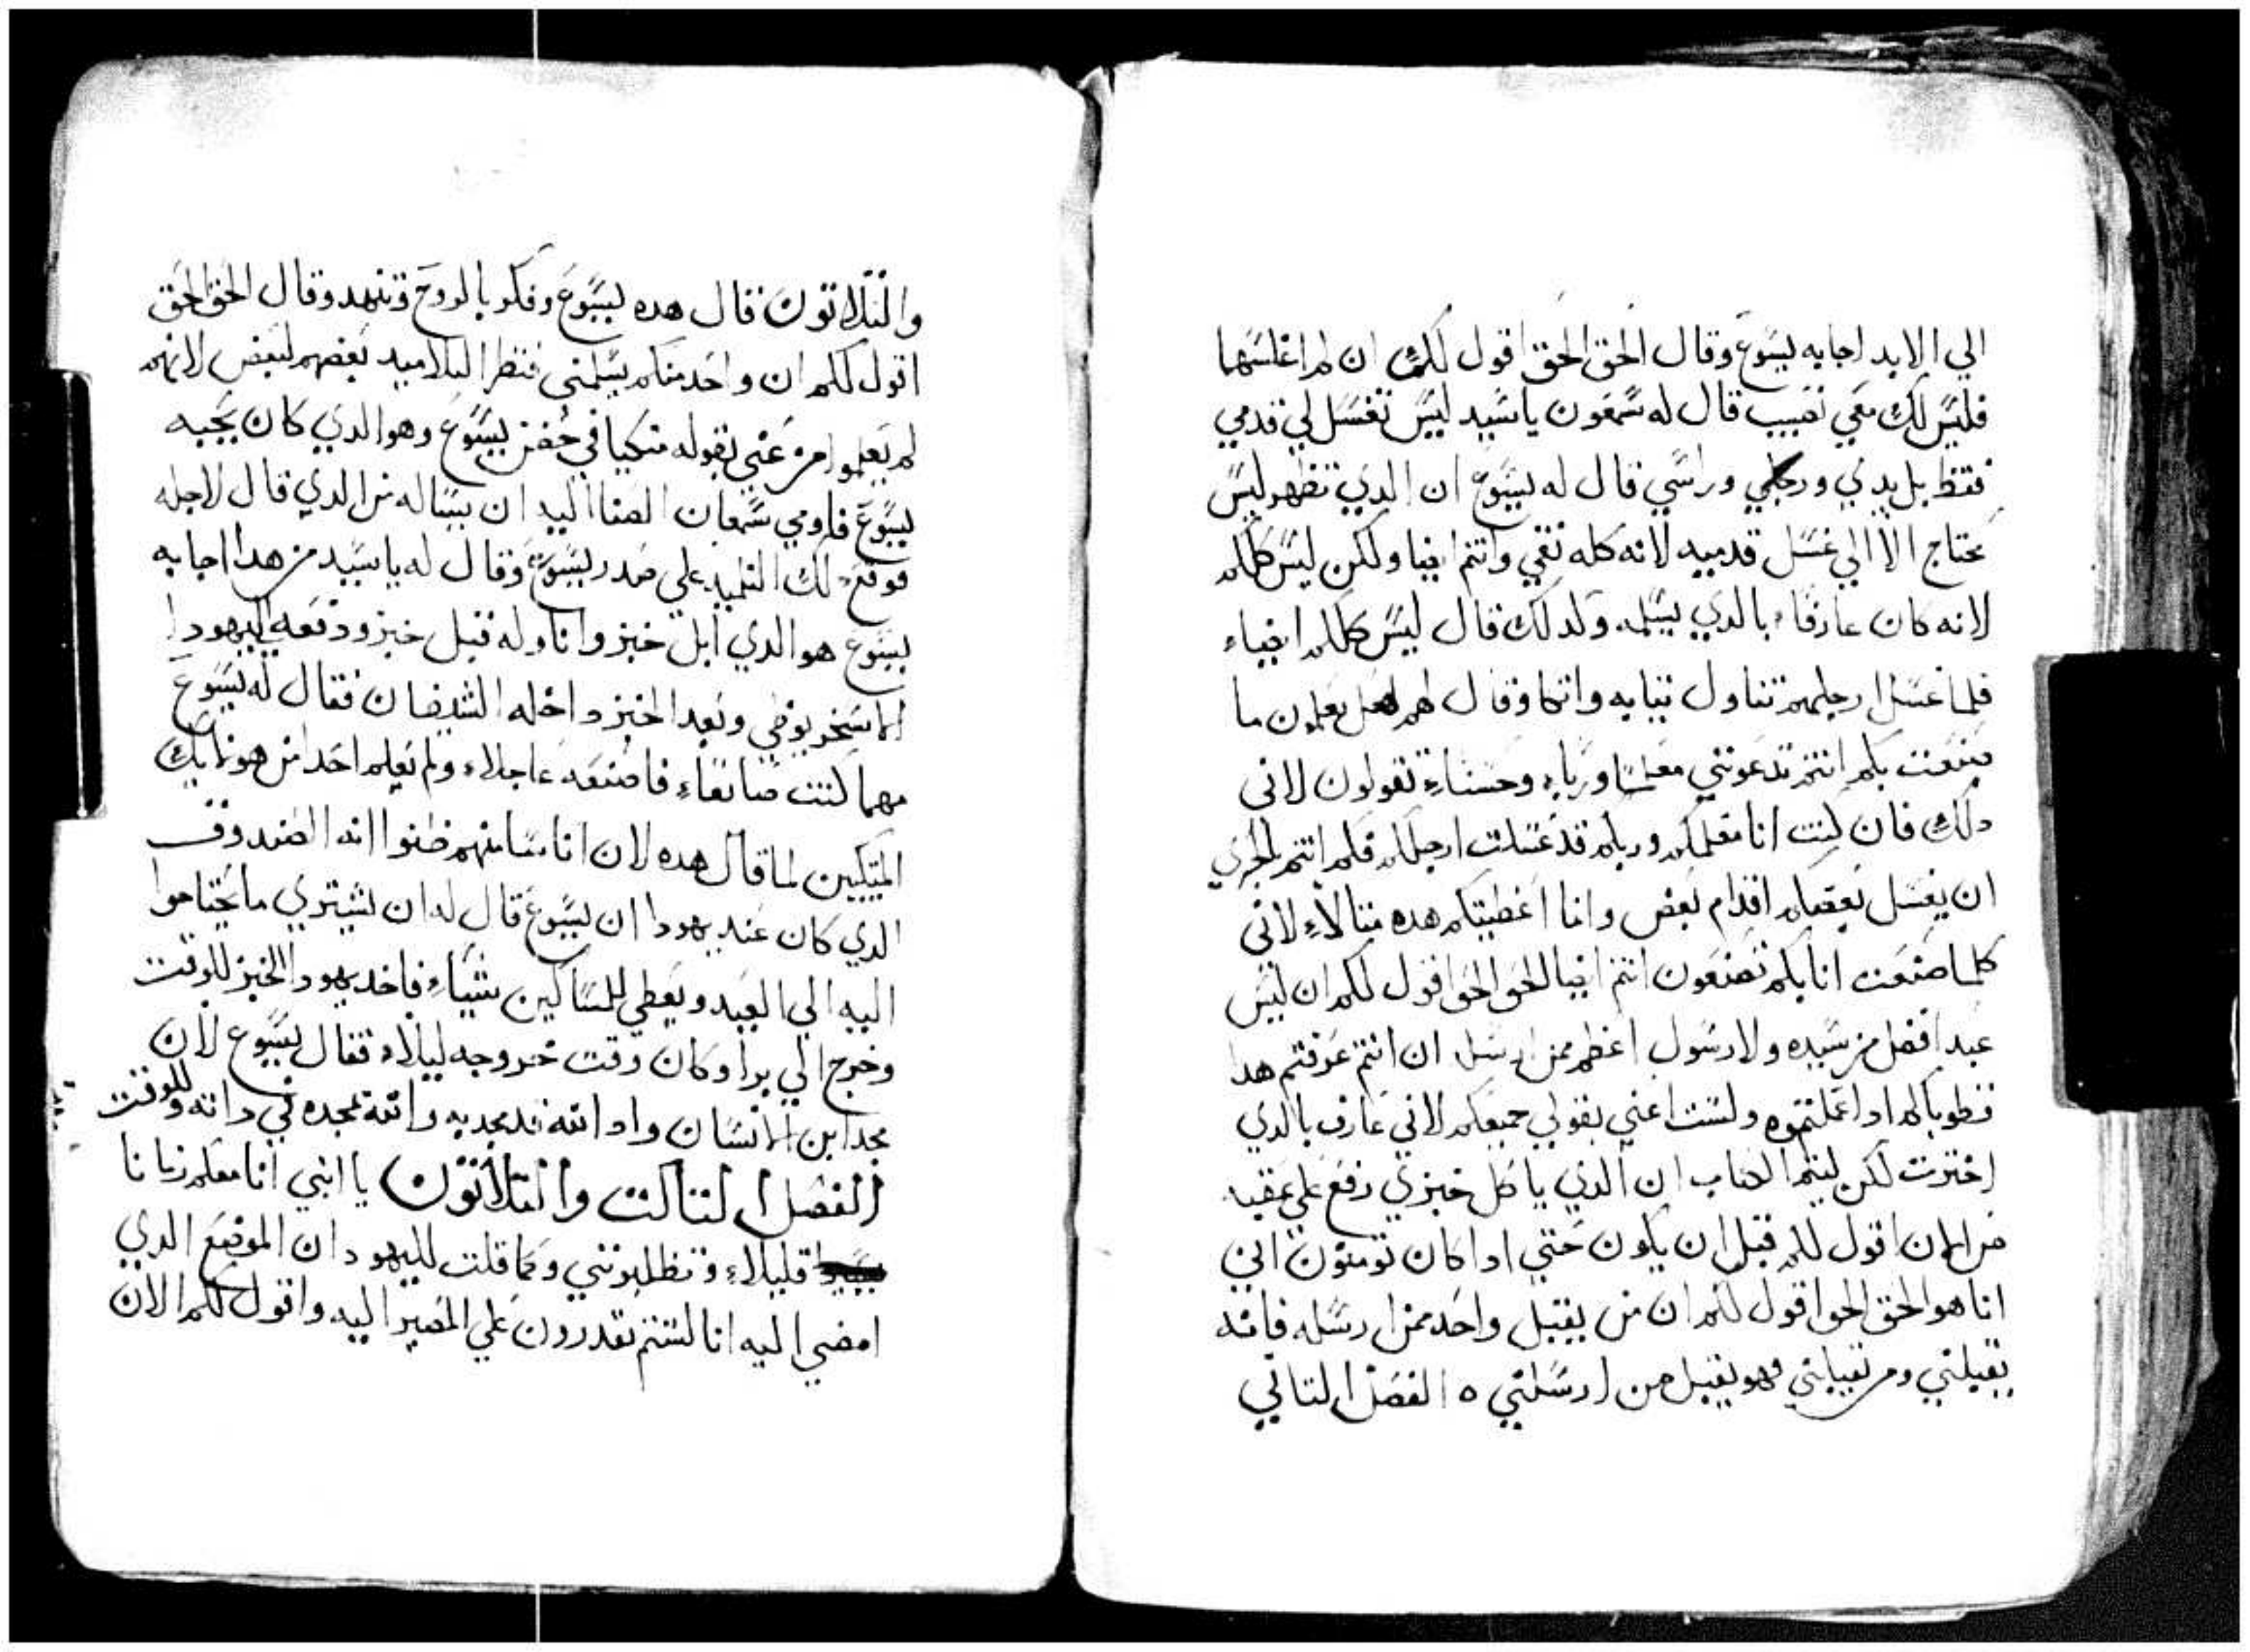 الي الابد اجابه يسوع وقال الحق الحق اقول لك ان لم اغلسهما
فليس لك معي نصيب قال له سمعون ياسيد ليس تغسل لي قدمي
فقط بل يدي ورجلي وراسي قال له يسوع ان الدي تطهر ليس
يحتاج الا الي غسل قدميه لانه كله نقي وانتم ايضا ولكن ليس كلكم
لانه كان عارفاء بالدي يسلمه ولدلك قال ليس كلكم انقياء
فلما غسل ارجلهم تناول تيابه واتكا وقال لهم لعل تعلمون ما
صنعت بكم انتم تدعونني معلما ورباء وحسناء تقولون لاني
دلك فان كنت انا معلمكم وربكم قد غسلت ارجلكم فكم انتم بالحري
ان يغسل بعضكم اقدام بعض وانا اعطيتكم هده متالاء لاني
كلما صنعت انا بكم تصنعون انتم ايضا الحق الحق اقول لكم ان ليس
عبد افضل من سيده ولا رسول اعظم ممن ارسل ان انتم عرفتم هدا
فطوباكم ادا عملتموه ولست اعني بقولي جميعكم لاني عارف بالدي
اخترت لكن ليتم الكتاب ان الدي ياكل خبزي رفع علي عقبه
من الان اقول لكم قبل ان يكون حتي ادا كان تومنون اني
انا هو الحق الحق اقول لكم ان من يقبل واحد ممن ارسله فانه
يقبلني ومن يقبلني فهو يقبل من ارسلني ٥ الفصل التاني
والتلاتون قال هده يسوع وفكر بالروح وتنهد وقال الحق الحق
اقول لكم ان واحد منكم يسلمني فنظر التلاميد بعضهم لبعض لانهم
لم يعلموا من عني بقوله متكيا في حضن يسوع وهو الدي كان يحبه
يسوع فاومي سمعان الصفا اليه ان يساله من الدي قال لاجله
فوقع دلك التلميد علي صدر يسوع وقال له ياسيد من هدا اجابه
يسوع هو الدي ابل خبز واناوله فبل خبز ودفعه لليهودا
الاسخريوطي وبعد الخبز داخله الشيطان فقال له يسوع
مهما كنت صانعاء فاصنعه عاجلاء ولم يعلم احد من هونايك
المتكيين لما قال هده لان اناسا منهم ظنوا انه الصندوق
الدي كان عند يهودا ان يسوع قال له ان يشتري ما يحتاجوا
اليه الي العيد ويعطي للمساكين شياء فاخد يهودا الخبز للوقت
وخرج الي برا وكان وقت خروجه ليلاء فقال يسوع لان
مجد ابن الانسان وادا الله قد مجد به والله مجده في داته وللوقت
الفصل التالت والتلاتون يا ابني انا معكم زمانا
قليلاء وتطلبونني وكما قلت لليهود ان الموضع الدي
امضي اليه انا لستم تقدرون علي المصير اليه واقول لكم الان